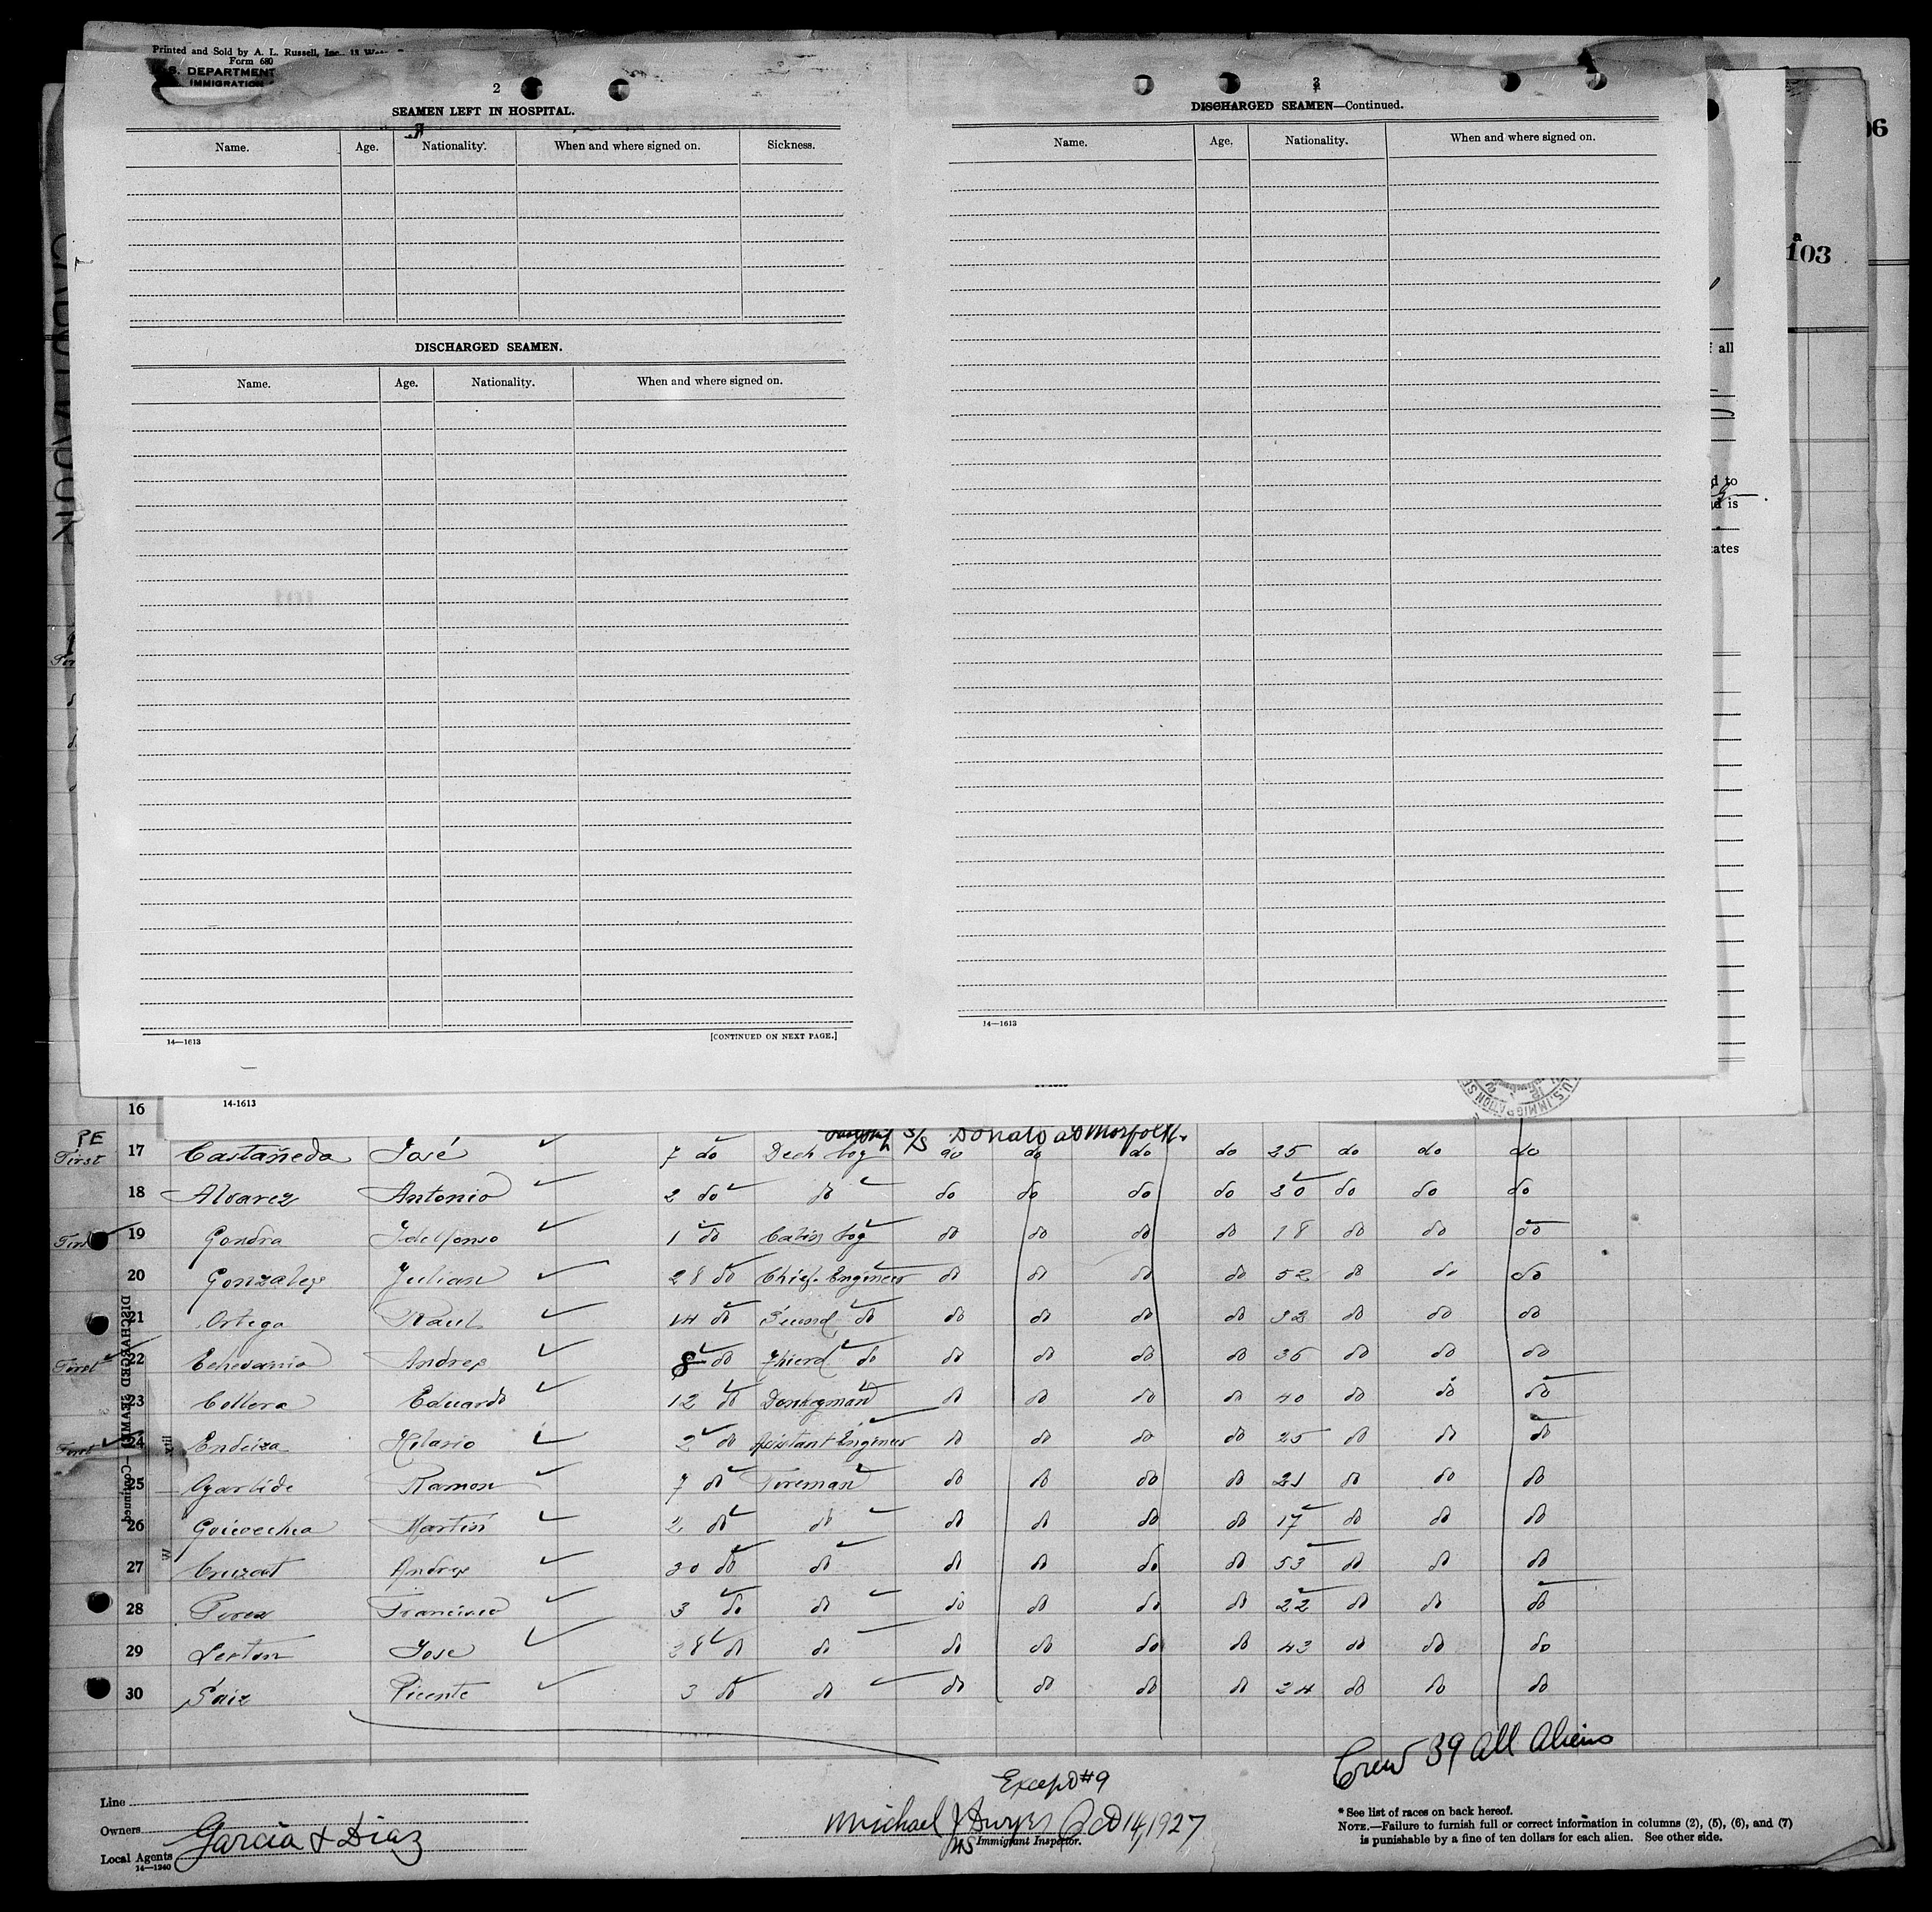 Printed and Sold by A. L. Russell, Inc.
Form 680
S. DEPARTMENT
IMMIGRATION
2
SEAMEN LEFT IN HOSPITAL.
Name. Age. Nationality. When and where signed on. Sickness.
DISCHARGED SEAMEN.
Name. Age. Nationality. When and where signed on.
14—1613 [CONTINUED ON NEXT PAGE.]
3
DISCHARGED SEAMEN—Continued.
Name. Age. Nationality. When and where signed on.
14—1613
06
103
f all
d to
is
tates
14-1613
U.S. IMMIGRATION SE
16
S/S Donato at Norfolk
PE
First 17 Castañeda José 7 do Deck boy do do do do 25 do do do
18 Alvarez Antonio 2 do do do do do do 30 do do do
First 19 Gondra Ildefonso 1 do Cabin boy do do do do 18 do do do
20 Gonzalez Julian 28 do Chief Engineer do do do do 52 do do do
21 Ortega Raul 14 do Second do do do do do 32 do do do
First 22 Echevarria Andres 8 do Thierd do do do do do 36 do do do
23 Collera Eduardo 12 do Donkeyman do do do do 40 do do do
First 24 Endeiza Hilario 2 do Assistant Engineer do do do do 25 do do do
25 Ramon 7 do Fireman do do do do 21 do do do
26 Goicoechea Martin 2 do do do do do do 17 do do do
27 Cruzat Andres 30 do do do do do do 53 do do do
28 Perez Francisco 3 do do do do do do 22 do do do
29 Lerton Jose 28 do do do do do do 43 do do do
30 Saiz Vicente 3 do do do do do do 24 do do do
DISCHARGED SEAMEN—Continued
Crew 39 all Aliens
Except #9
Line
Owners
Garcia & Diaz
Local Agents
14—1240
Michael J Dwyer Oct 14, 1927
US Immigrant Inspector.
* See list of races on back hereof.
NOTE.—Failure to furnish full or correct information in columns (2), (5), (6), and (7)
is punishable by a fine of ten dollars for each alien. See other side.